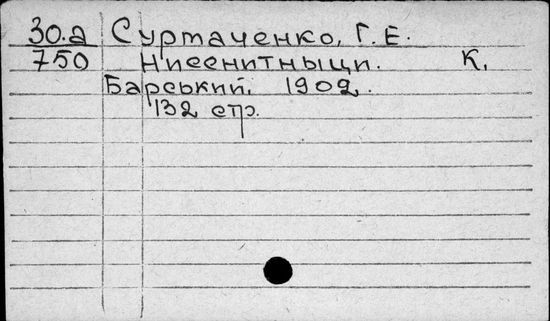 30.а Суртаченко, Г. Е.
750 Нисенитныци. К.
Барський. 1902.
132 стр.